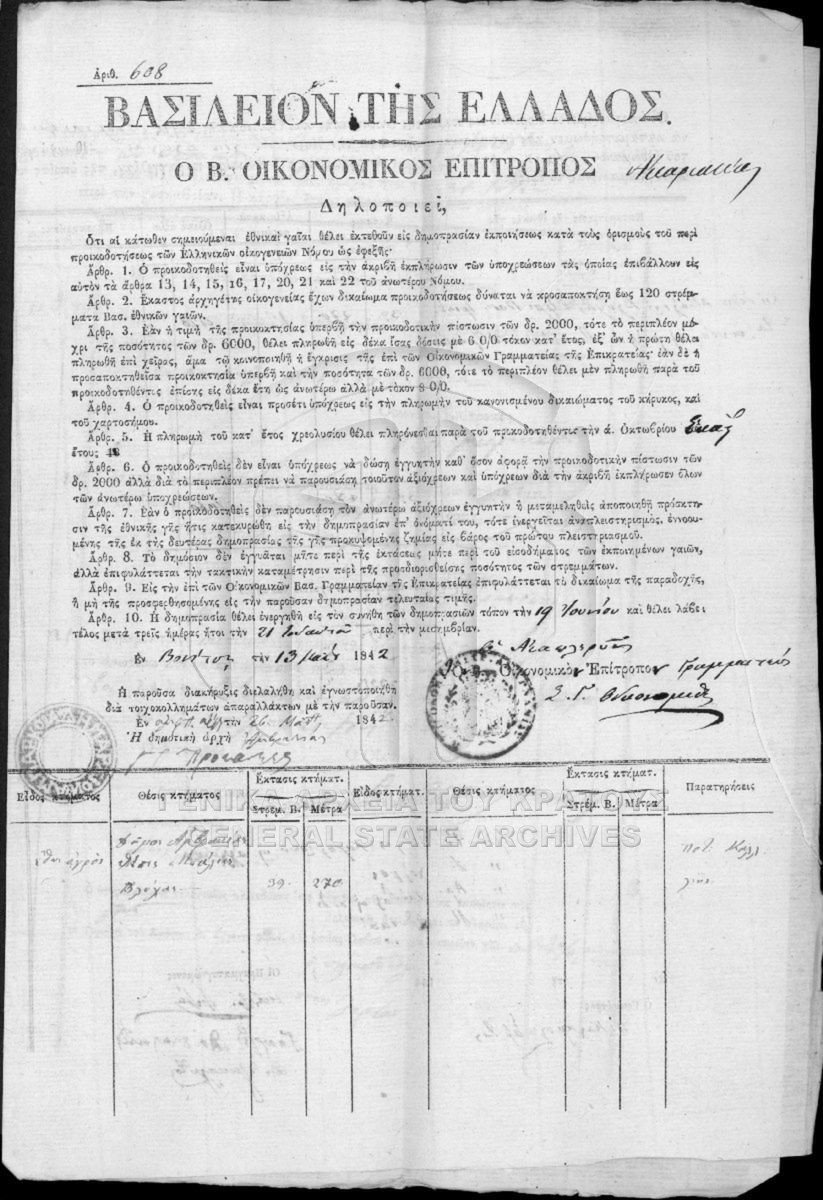 Ἀριθ. 608
ΒΑΣΙΛΕΙΟΝ ΤΗΣ ΕΛΛΑΔΟΣ.
Ο Β. ΟΙΚΟΝΟΜΙΚΟΣ ΕΠΙΤΡΟΠΟΣ Ἀκαρνανίας
Δηλοποιεῖ,
Ὅτι αἱ κάτωθεν σημειούμεναι ἐθνικαὶ γαῖαι θέλει ἐκτεθοῦν εἰς δημοπρασίαν ἐκποιήσεως κατὰ τοὺς ὁρισμοὺς τοῦ περὶ
προικοδοτήσεως τῶν Ἑλληνικῶν οἰκογενειῶν Νόμου ὡς ἐφεξῆς·
Ἄρθρ. 1. Ὁ προικοδοτηθεὶς εἶναι ὑπόχρεως εἰς τὴν ἀκριβῆ ἐκπλήρωσιν τῶν ὑποχρεώσεων τὰς ὁποίας ἐπιβάλλουν εἰς
αὐτὸν τὰ ἄρθρα 13, 14, 15, 16, 17, 20, 21 καὶ 22 τοῦ ἀνωτέρω Νόμου.
Ἄρθρ. 2. Ἕκαστος ἀρχηγέτης οἰκογενείας ἔχων δικαίωμα προικοδοτήσεως δύναται νὰ προσαποκτήσῃ ἕως 120 στρέμ-
ματα Βασ. ἐθνικῶν γαιῶν.
Ἄρθρ. 3. Ἐὰν ἡ τιμὴ τῆς προικοκτησίας ὑπερβῇ τὴν προικοδοτικὴν πίστωσιν τῶν δρ. 2000, τότε τὸ περιπλέον μέ-
χρι τῆς ποσότητος τῶν δρ. 6000, θέλει πληρωθῆ εἰς δέκα ἴσας δόσεις μὲ 6 0/0 τόκον κατ' ἔτος, ἐξ' ὧν ἡ πρώτη θέλει
πληρωθῆ ἐπὶ χεῖρας, ἅμα τῷ κοινοποιηθῇ ἡ ἔγκρισις τῆς ἐπὶ τῶν Οἰκονομικῶν Γραμματείας τῆς Ἐπικρατείας· ἐὰν δὲ ἡ
προσαποκτηθεῖσα προικοκτησία ὑπερβῇ καὶ τὴν ποσότητα τῶν δρ. 6000, τότε τὸ περιπλέον θέλει μὲν πληρωθῆ παρὰ τοῦ
προικοδοτηθέντος ἐπίσης εἰς δέκα ἔτη ὡς ἀνωτέρω ἀλλὰ μὲ τόκον 8 0/0.
Ἄρθρ. 4. Ὁ προικοδοτηθεὶς εἶναι προσέτι ὑπόχρεως εἰς τὴν πληρωμὴν τοῦ κανονισμένου δικαιώματος τοῦ κήρυκος, καὶ
τοῦ χαρτοσήμου.
Ἄρθρ. 5. Ἡ πληρωμὴ τοῦ κατ' ἔτος χρεολυσίου θέλει πληρόνεσθαι παρὰ τοῦ προικοδοτηθέντος τὴν ά. Ὀκτωβρίου
ἔτους
Ἄρθρ. 6. Ὁ προικοδοτηθεὶς δὲν εἶναι ὑπόχρεως νὰ δώσῃ ἐγγυητὴν καθ' ὅσον ἀφορᾷ τὴν προικοδοτικὴν πίστωσιν τῶν
δρ. 2000 ἀλλὰ διὰ τὸ περιπλέον πρέπει νὰ παρουσιάσῃ τοιοῦτον ἀξιόχρεων καὶ ὑπόχρεων διὰ τὴν ἀκριβῆ ἐκπλήρωσιν ὅλων
τῶν ἀνωτέρω ὑποχρεώσεων.
Ἄρθρ. 7. Ἐὰν ὁ προικοδοτηθεὶς δὲν παρουσιάσῃ τὸν ἀνωτέρω ἀξιόχρεων ἐγγυητὴν ἢ μεταμεληθεὶς ἀποποιηθῇ πρόσκτη-
σιν τῆς ἐθνικῆς γῆς ἥτις κατεκυρώθη εἰς τὴν δημοπρασίαν ἐπ' ὀνόματί του, τότε ἐνεργεῖται ἀναπλειστηριασμὸς, ἐννοου-
μένης τῆς ἐκ τῆς δευτέρας δημοπρασίας τῆς γῆς προκυψομένης ζημίας εἰς βάρος τοῦ πρώτου πλειστηριασμοῦ.
Ἄρθρ. 8. Τὸ δημόσιον δὲν ἐγγυᾶται μήτε περὶ τῆς ἐκτάσεως μήτε περὶ τοῦ εἰσοδήματος τῶν ἐκποιημένων γαιῶν,
ἀλλὰ ἐπιφυλάττεται τὴν τακτικὴν καταμέτρησιν περὶ τῆς προσδιορισθείσης ποσότητος τῶν στρεμμάτων.
Ἄρθρ. 9. Εἰς τὴν ἐπὶ τῶν Οἰκονομικῶν Βασ. Γραμματείαν τῆς Ἐπικρατείας ἐπιφυλάττεται τὸ δικαίωμα τῆς παραδοχῆς,
ἢ μὴ τῆς προσφερθησομένης εἰς τὴν παροῦσαν δημοπρασίαν τελευταίας τιμῆς.
Ἄρθρ. 10. Ἡ δημοπρασία θέλει ἐνεργηθῆ εἰς τὸν συνήθη τῶν δημοπρασιῶν τόπον τὴν 19 Ἰουνίου καὶ θέλει λάβει
τέλος μετὰ τρεῖς ἡμέρας ἤτοι τὴν 21 περὶ τὴν μεσημβρίαν.
Ἐν Βονίτσῃ τὴν 13 Μαΐου 1842
Ὁ Β. Οἰκονομικὸς Ἐπίτροπος Γραμματεὺς
Ἡ παροῦσα διακήρυξις διελαλήθη καὶ ἐγνωστοποιήθη
διὰ τοιχοκολλημάτων ἀπαραλλάκτων μὲ τὴν παροῦσαν.
Ἐν τὴν 26 Μαΐου 1842
Ἡ δημοτικὴ ἀρχὴ
Εἶδος κτήματος Θέσις κτήματος Ἔκτασις κτήματ. Εἶδος κτήματ. Θέσις κτήματος Ἔκτασις κτήματ. Παρατηρήσεις
Στρέμ. Β. Μέτρα Στρέμ. Β. Μέτρα
ΓΕΝΙΚΑ ΑΡΧΕΙΑ ΤΟΥ ΚΡΑΤΟΥΣ
GENERAL STATE ARCHIVES
ἀγρὸς
39. 270